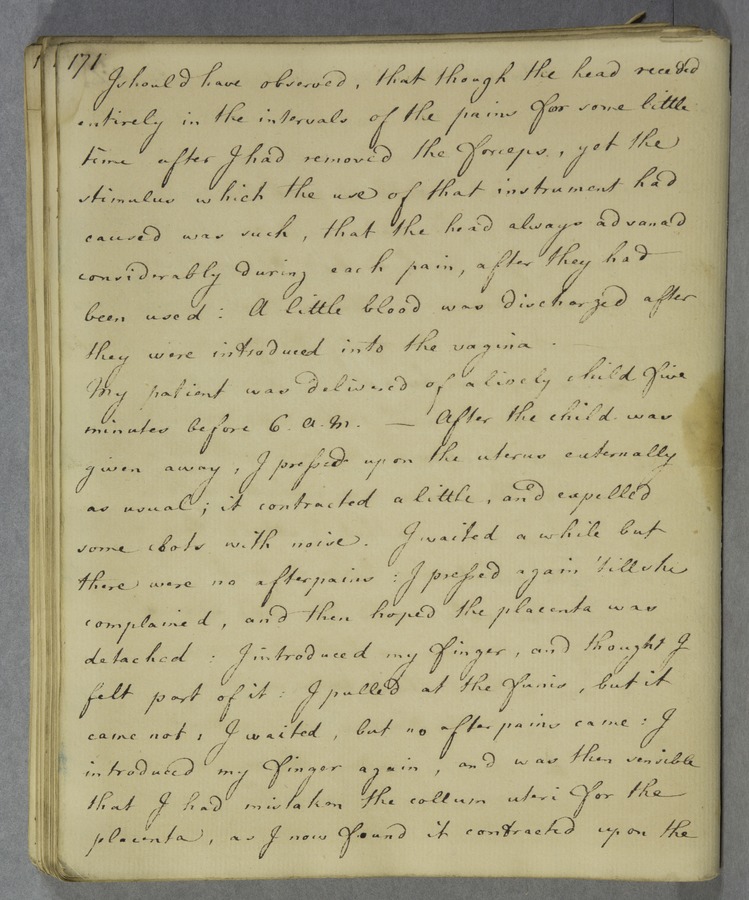 171
I should have observed, that though the head receded
entirely in the intervals of the pains for some little
time after I had removed the forceps, yet the
stimulus which the use of that instrument had
caused was such, that the head always advanced
considerably during each pain, after they had
been used: A little blood was discharged after
they were introduced into the vagina.
My patient was delivered of a lively child five
minutes before 6 a.m. — After the child was
given away, I pressed upon the uterus externally
as usual; it contracted a little, and expelled
some clots with noise. I waited a while but
there were no afterpains: I pressed again 'till she
complained, and then hoped the placenta was
detached: I introduced my finger, and thought I
felt part of it: I pulled at the funis, but it
came not; I waited, but no afterpains came: I
introduced my finger again, and was then sensible
that I had mistaken the collum uteri for the
placenta, as I now found it contracted upon the